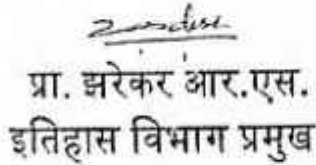 प्रा. झरेकर आर.एस.
इतिहास विभाग प्रमुख